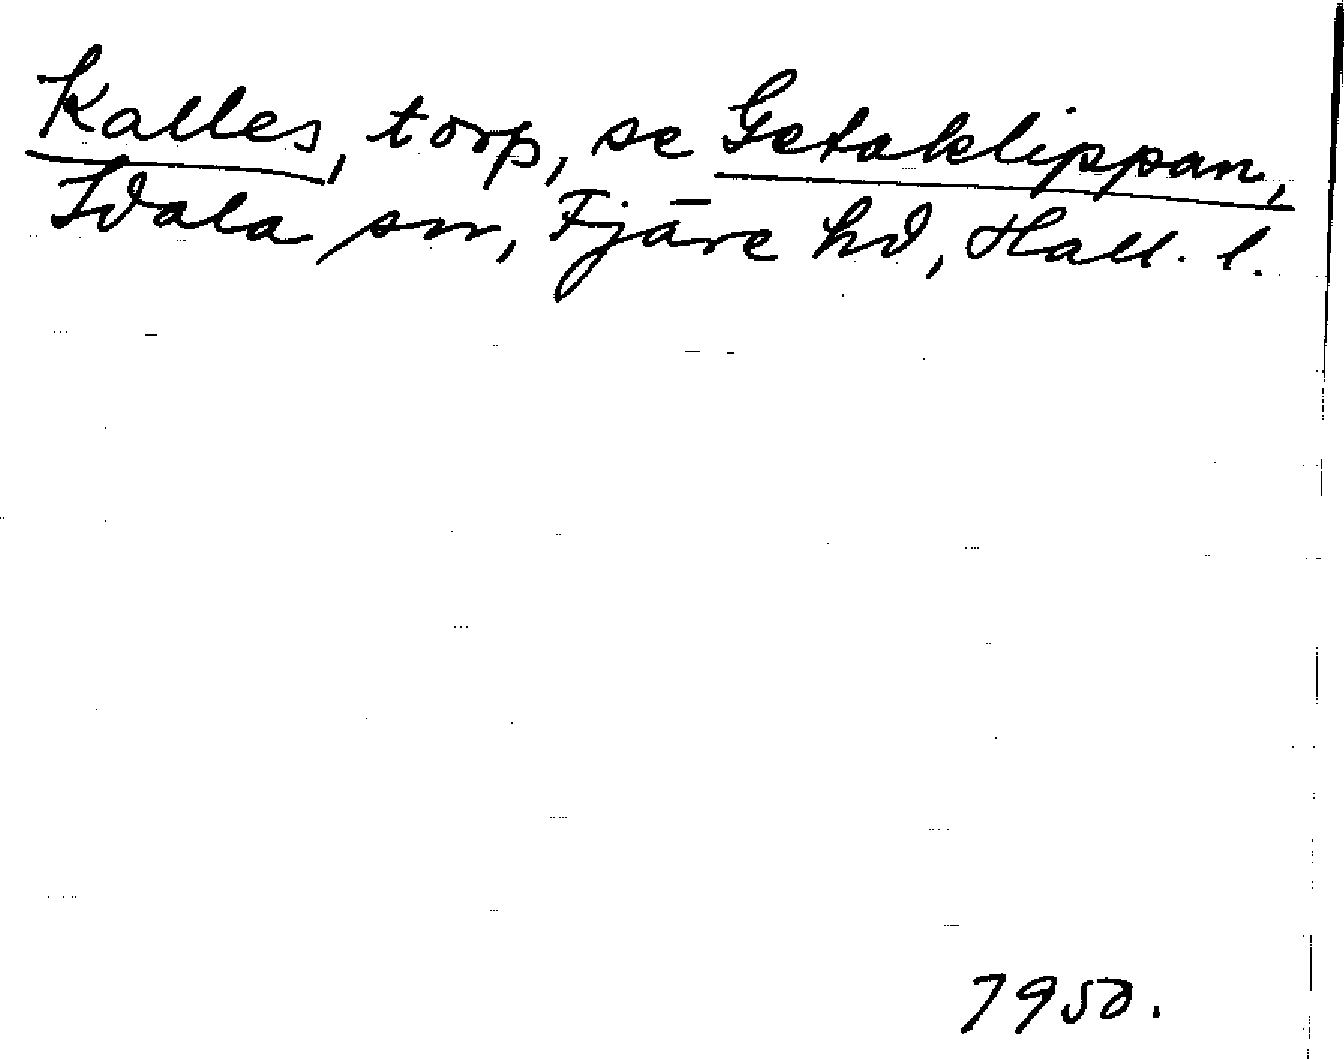 Kalles, torp, se Getaklippan,
Idala sn, Fjäre hd, Hall. l.
7950.